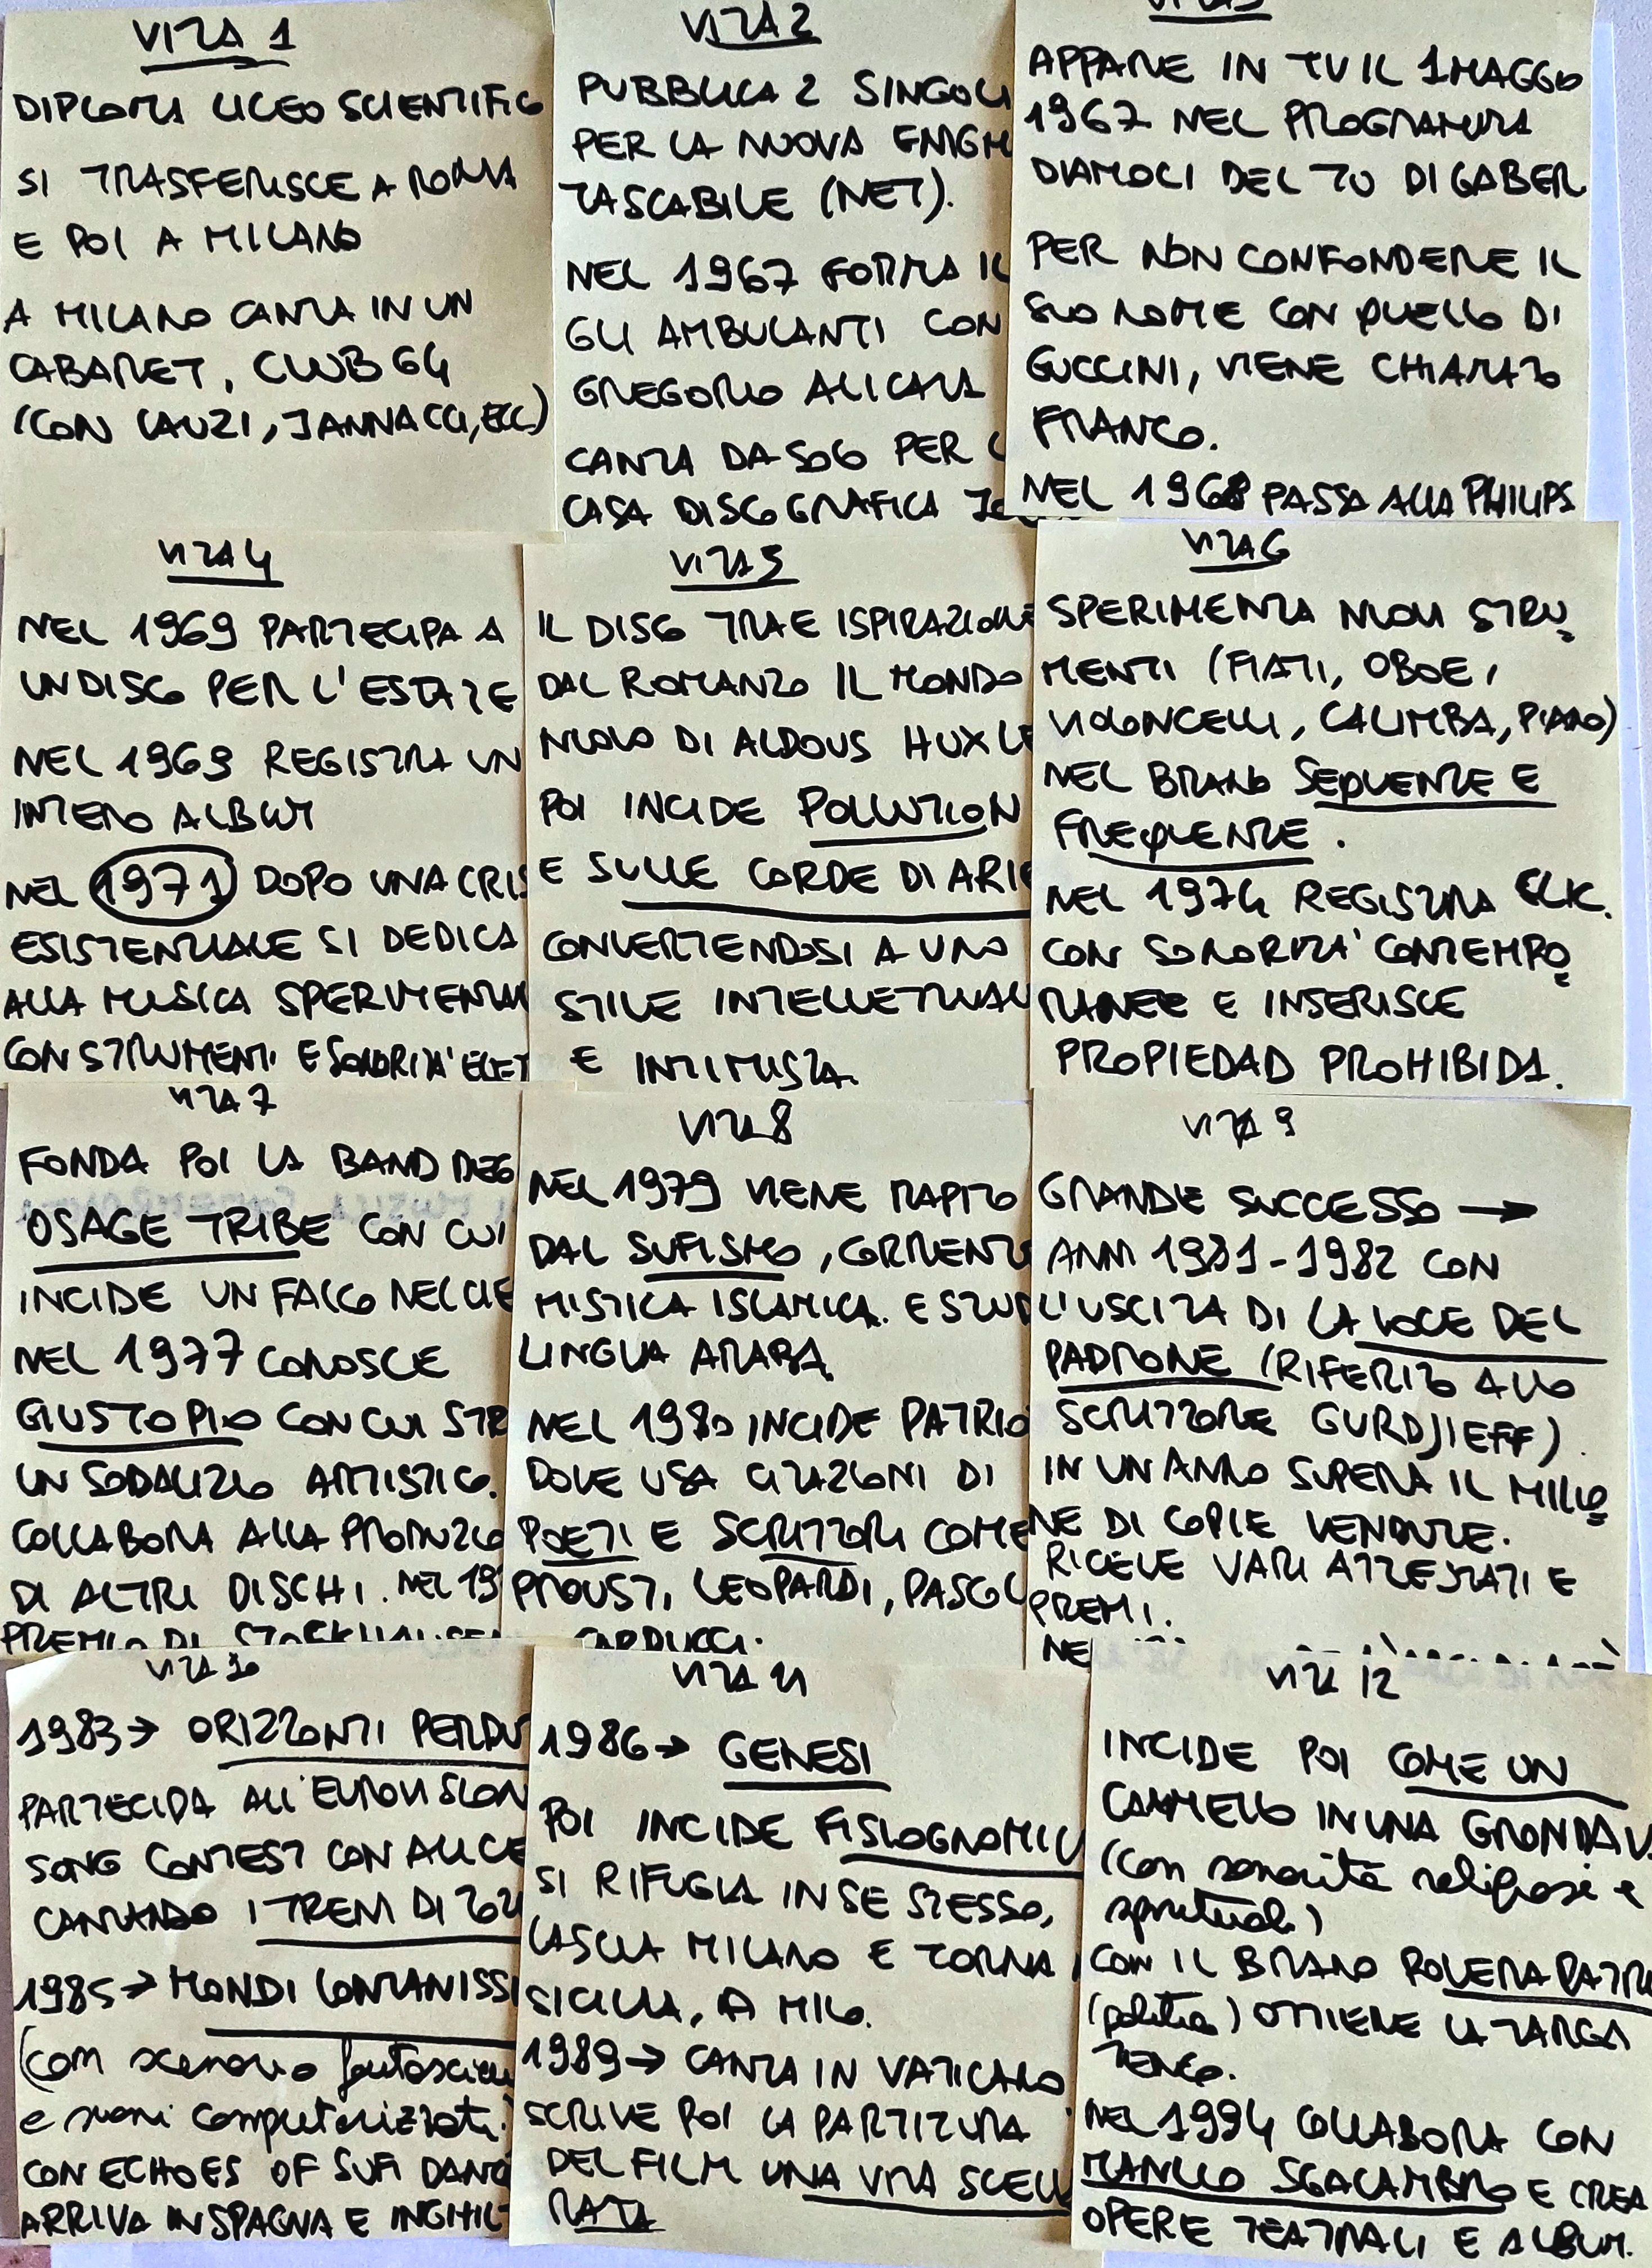 VITA 1
DIPLOMA LICEO SCIENTIFICO
SI TRASFERISCE A ROMA
E POI A MILANO
A MILANO CANTA IN UN
CABARET, CLUB 64
(CON LAUZI, JANNACCI, ECC)
VITA 2
PUBBLICA 2 SINGOLI
PER LA NUOVA ENIGM
TASCABILE (NET).
NEL 1967 FORMA IL
GLI AMBULANTI CON
GREGORIO ALICATA
CANTA DA SOLO PER
CASA DISCOGRAFICA
VITA 3
APPARE IN TV IL 1 MAGGIO
1967 NEL PROGRAMMA
DIAMOCI DEL TU DI GABER
PER NON CONFONDERE IL
SUO NOME CON QUELLO DI
GUCCINI, VIENE CHIAMATO
FRANCO.
NEL 1968 PASSA ALLA PHILIPS
VITA 4
NEL 1969 PARTECIPA A
UN DISCO PER L'ESTATE
NEL 1969 REGISTRA UN
INTERO ALBUM
NEL 1971 DOPO UNA CRIS
ESISTENZIALE SI DEDICA
ALLA MUSICA SPERIMENTAL
CON STRUMENTI E SONORITA' ELET
VITA 5
IL DISCO TRAE ISPIRAZIONE
DAL ROMANZO IL MONDO
NUOVO DI ALDOUS HUXLE
POI INCIDE POLLUTION
E SULLE CORDE DI ARIE
CONVERTENDOSI A UNO
STILE INTELLETTUAL
E INTIMISTA.
VITA 6
SPERIMENTA NUOVI STRU
MENTI (FIATI, OBOE,
VIOLONCELLI, CALIMBA, PIANO)
NEL BRANO SEQUENZE E
FREQUENZE.
NEL 1974 REGISTRA CLIC.
CON SONORITA' CONTEMPO
RANEE E INSERISCE
PROPIEDAD PROHIBIDA.
VITA 7
FONDA POI LA BAND DEG
OSAGE TRIBE CON CUI
INCIDE UN FALCO NEL CIE
NEL 1977 CONOSCE
GIUSTO PIO CON CUI STR
UN SODALIZIO ARTISTICO.
COLLABORA ALLA PRODUZIO
DI ALTRI DISCHI. NEL 19
PREMIO DI STOCKHAUSEN
VITA 8
NEL 1979 VIENE RAPITO
DAL SUFISMO, CORRENTE
MISTICA ISLAMICA. E STUD
LINGUA ARABA
NEL 1980 INCIDE PATRIO
DOVE USA CITAZIONI DI
POETI E SCRITTORI COME
PROUST, LEOPARDI, PASCOL
CARDUCCI.
VITA 9
GRANDE SUCCESSO →
ANNI 1981-1982 CON
L'USCITA DI LA VOCE DEL
PADRONE (RIFERITO ALLO
SCRITTORE GURDJIEFF).
IN UN ANNO SUPERA IL MILIO
NE DI COPIE VENDUTE.
RICEVE VARI ATTESTATI E
PREMI.
NE
VITA 10
1983 → ORIZZONTI PERDU
PARTECIPA ALL'EUROVISION
SONG CONTEST CON ALICE
CANTANDO I TRENI DI TOZ
1985 → MONDI LONTANISSI
(con scenario fantascien
e suoni computerizzati)
CON ECHOES OF SUFI DANC
ARRIVA IN SPAGNA E INGHIL
VITA 11
1986 → GENESI
POI INCIDE FISIOGNOMIC
SI RIFUGIA IN SE STESSO,
LASCIA MILANO E TORNA I
SICILIA, A MILO.
1989 → CANTA IN VATICANO
SCRIVE POI LA PARTITURA
DEL FILM UNA VITA SCELL
RATA
VITA 12
INCIDE POI COME UN
CAMMELLO IN UNA GRONDAI
(con sonorità religiose e
spirituali)
CON IL BRANO POVERA PATRI
(politica) OTTIENE LA TARGA
TENCO.
NEL 1994 COLLABORA CON
MANLIO SGALAMBRO E CREA
OPERE TEATRALI E ALBUM.